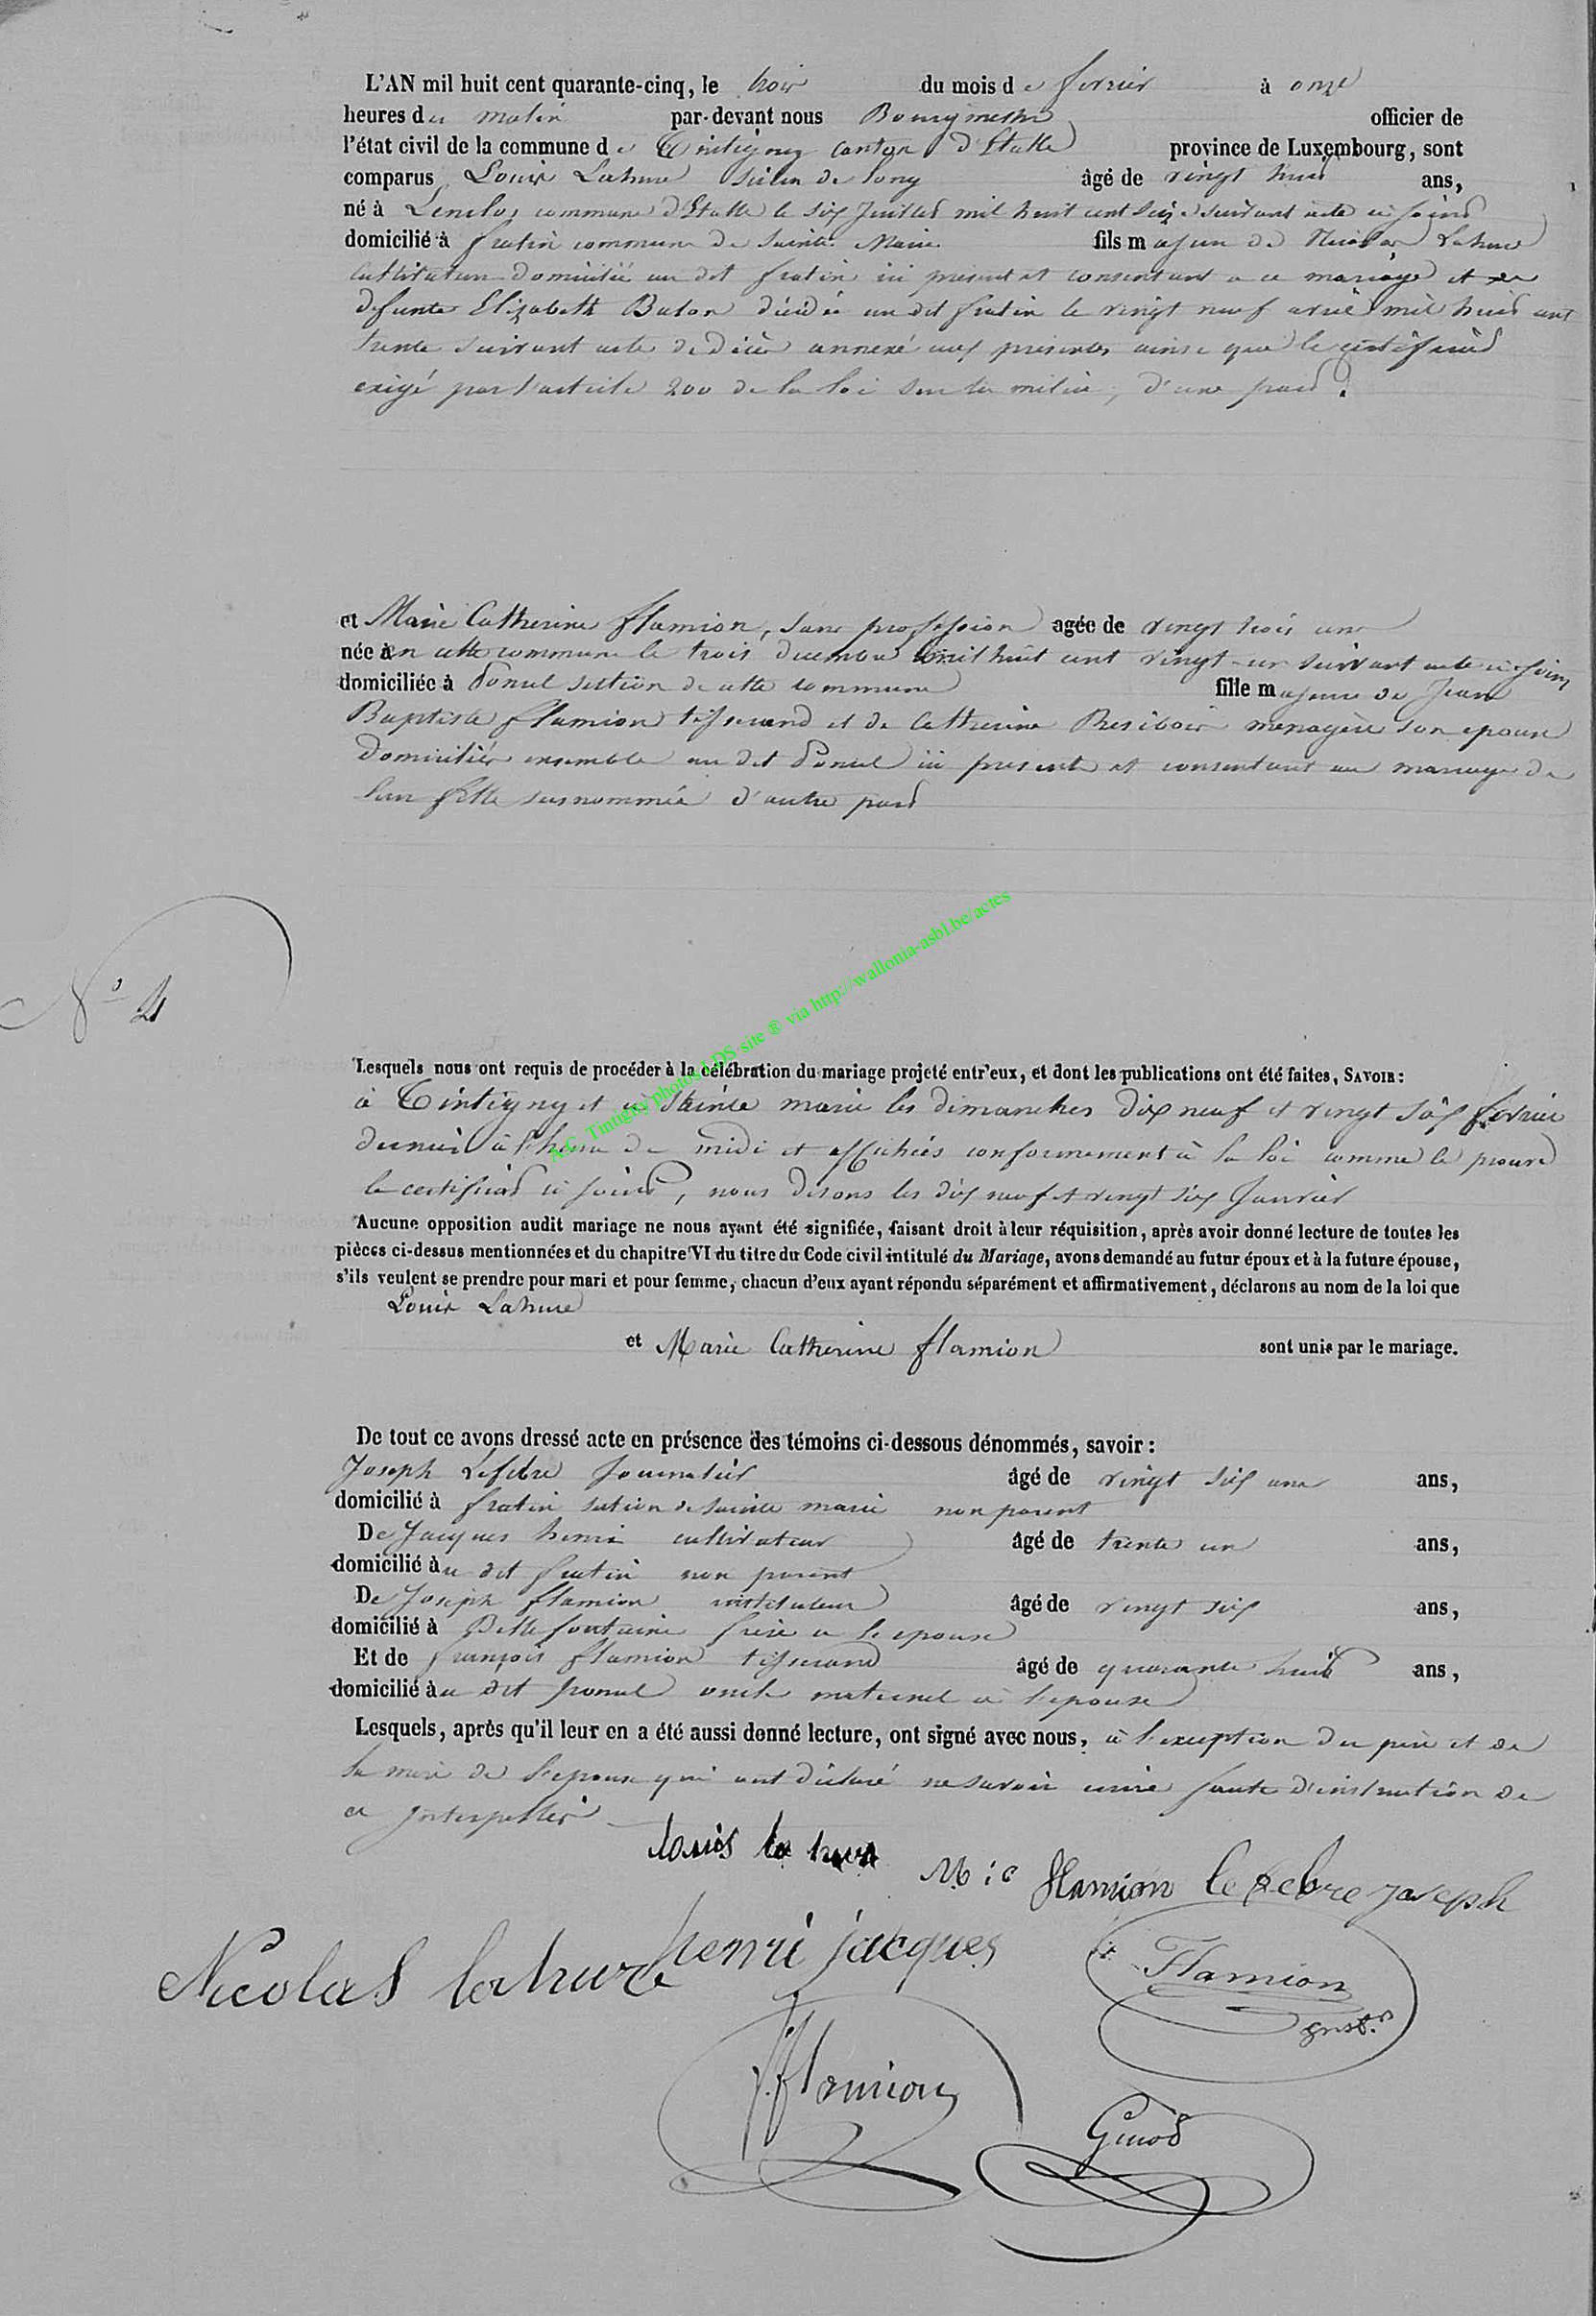 L'AN mil huit cent quarante-cinq, le trois du mois de fevrier à onze
heures du matin par-devant nous Bourgmestre officier de
l'état civil de la commune de Tintigny canton d'Etalle province de Luxembourg, sont
comparus Louis Lahure scieur de long âgé de vingt huit ans,
né à Lenclos commune d'Etalle le six Juillet mil huit cent seize suivant acte ci joint
domicilié à fratin commune de Sainte Marie fils majeur de Nicolas Lahure
cultivateur domicilié au dit fratin ici present et consentant a ce mariage et de
defunte Elizabeth Buton décédée au dit fratin le vingt neuf avril mil huit cent
trente suivant acte de décès annexé aux presentes ainsi que le certificat
exigé par l'article 200 de la loi sur la milice, d'une part.
et Marie Catherine flamion, sans profession agée de vingt trois ans
née à en cette commune le trois decembre mil huit cent vingt-un suivant acte ci-joint
domiciliée à Ponsel section de cette commune fille majeure de Jean
Baptiste flamion tisserand et de Catherine menagère son epouse
domiciliés ensemble au dit Ponsel ici presents et consentant au mariage de
leur fille susnommée d'autre part
N° 4
Lesquels nous ont requis de procéder à la célébration du mariage projeté entr'eux, et dont les publications ont été faites, SAVOIR:
à Tintigny et à Sainte marie les dimanches dix neuf et vingt six fevrier
dernier à l'heure de midi et affichées conformement à la loi comme le prouve
le certificat ci joint, nous disons les dix neuf et vingt six Janvier
Aucune opposition audit mariage ne nous ayant été signifiée, faisant droit à leur réquisition, après avoir donné lecture de toutes les
pièces ci-dessus mentionnées et du chapitre VI du titre du Code civil intitulé du Mariage, avons demandé au futur époux et à la future épouse,
s'ils veulent se prendre pour mari et pour femme, chacun d'eux ayant répondu séparément et affirmativement, déclarons au nom de la loi que
Louis Lahure
et Marie Catherine flamion sont unis par le mariage.
De tout ce avons dressé acte en présence des témoins ci-dessous dénommés, savoir:
Joseph Lefebre Journalier âgé de vingt six ans ans,
domicilié à fratin section de Sainte marie non parent
De Jacques henri cultivateur âgé de trente un ans,
domicilié au dit fratin non parent
De Joseph flamion instituteur âgé de vingt six ans,
domicilié à Bellefontaine frère a l'epouse
Et de françois flamion tisserand âgé de quarante huit ans,
domicilié au dit ponsel oncle maternel a l'epouse
Lesquels, après qu'il leur en a été aussi donné lecture, ont signé avec nous, à l'exception du père et de
la mère de l'epouse qui ont déclaré ne savoir ecrire faute d'instruction de
ce Interpellés
louis la hure M:c flamion lefebre joseph
Nicolas lahure henri jacques Flamion
Inst.r
f. flamion
Ginod
A.C. Tintigny photos LDS-site ® via http://wallonia-asbl.be/actes